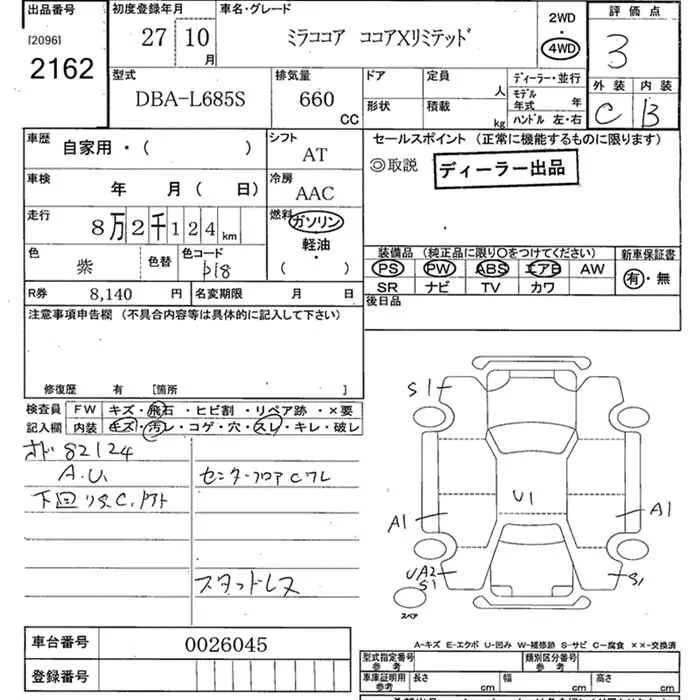 出品番号 初度登録年月 車名・グレード 2WD 評価点
[2096] 27 10 月 ミラココア ココアXリミテッド 4WD 3
2162
型式 排気量 ドア 定員 人 ディーラー・並行 外装 内装
DBA-L685S 660 CC 形状 積載 kg モデル年式 年 C B
ハンドル 左・右
車歴 自家用・( ) シフト AT セールスポイント (正常に機能するものに限ります)
◎取説 ディーラー出品
車検 年 月 ( 日) 冷房 AAC
走行 8万2千124 km 燃料 ガソリン
軽油・
( )
色 紫 色替 色コード P18
装備品 (純正品に限り○をつけてください) 新車保証書
PS PW ABS エアB AW 有・無
SR ナビ TV カワ
R券 8,140 円 名変期限 月 日 後日品
注意事項申告欄 (不具合内容等は具体的に記入して下さい)
修復歴 有 [箇所 ]
検査員 FW キズ・飛石・ヒビ割・リペア跡・×要
記入欄 内装 キズ・汚レ・コゲ・穴・スレ・キレ・破レ
82124
A.U. センターフロアCワレ
下回
スタッドレス
S1
U1
A1 A1
UA2 S1
S1
スペア
A-キズ E-エクボ U-凹み W-補修跡 S-サビ C-腐食 ××-交換済
車台番号 0026045
登録番号
型式指定番号 参考 類別区分番号 参考
車庫証明用 参考 長さ cm 幅 cm 高さ cm